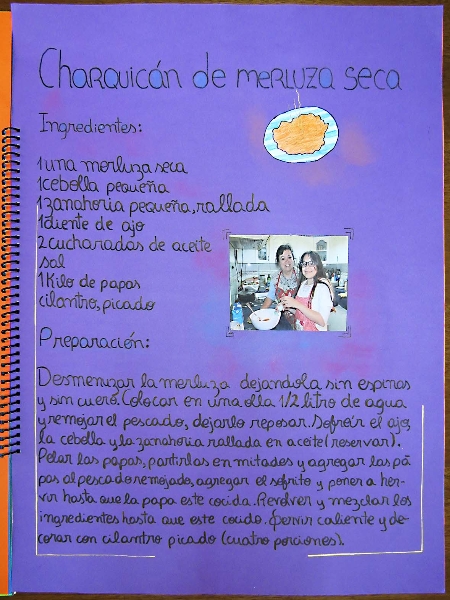 Charquicán de merluza seca
Ingredientes:
1 una merluza seca
1 cebolla pequeña
1 zanahoria pequeña, rallada
1 diente de ajo
2 cucharadas de aceite
sal
1 Kilo de papas
cilantro, picado
Preparación:
Desmenuzar la merluza dejandola sin espinas
y sin cuero. Colocar en una olla 1/2 litro de agua
y remojar el pescado, dejarlo reposar. Sofreír el ajo,
la cebolla y la zanahoria rallada en aceite (reservar).
Pelar las papas, partirlas en mitades y agregar las pa
pas al pescado remojado, agregar el sofrito y poner a her-
vir hasta que la papa este cocida. Revolver y mezclar los
ingredientes hasta que este cocido. Servir caliente y de-
corar con cilantro picado (cuatro porciones).